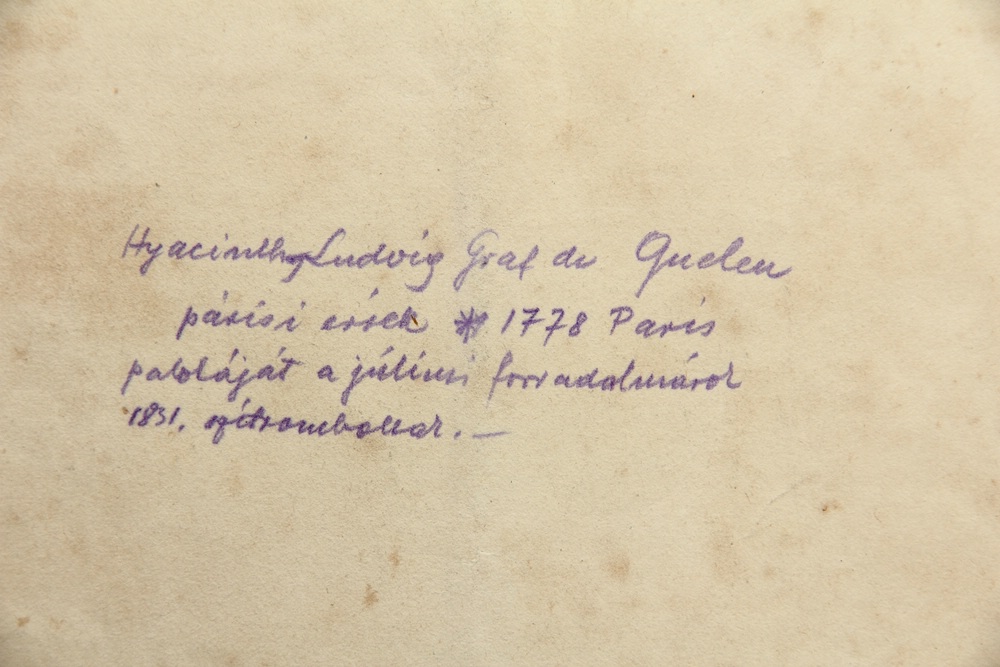 Hyacinth Ludvig Graf de Quelen
párisi érsek * 1778 Paris
palotáját a júliusi forradalmárok
1831. szétrombolták. —